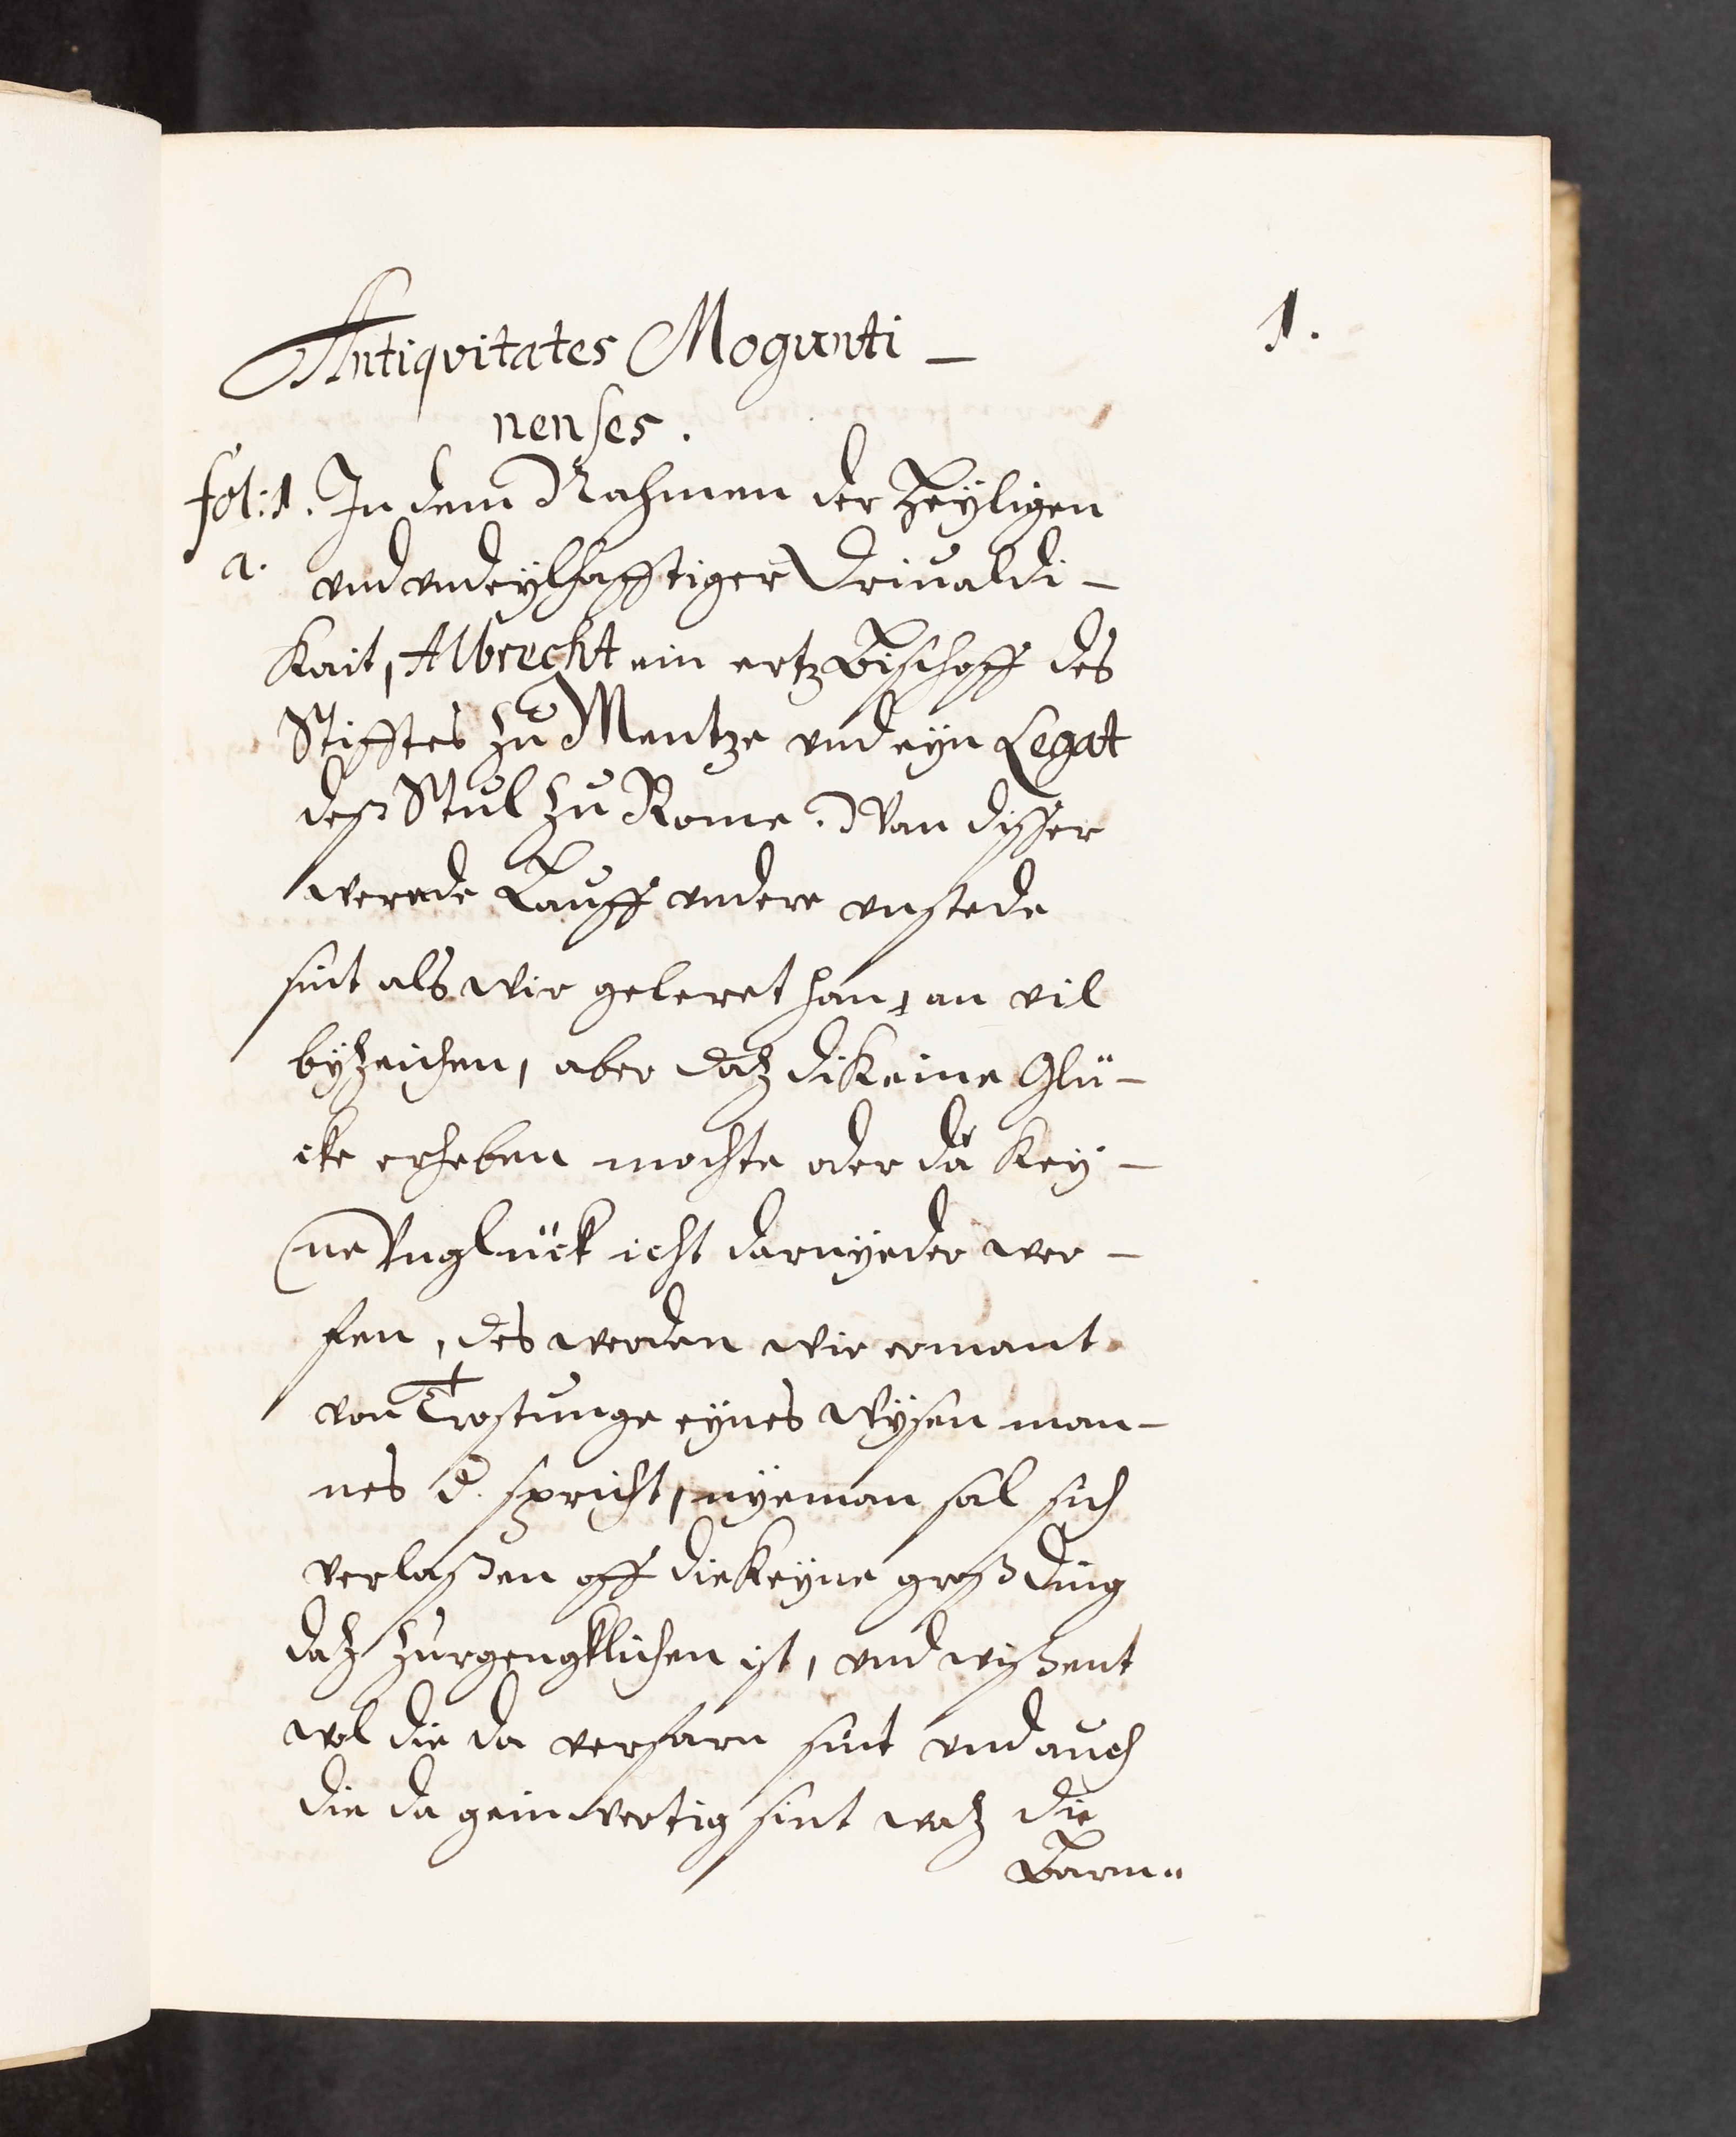 1.
Antiqvitates Mogunti-
nenses.
fol: 1. In dem Nahmen der Heyligen
a. vnd vndeylhafftiger Drivaldi-
kait, Albrecht ein ertz Bischoff des
Stifftes zu Mentze vnd eyn Legat
deß Stul zu Rome. Wan disser
werede Lauff vndere vnstede
sint als wir geleret han, an vil
byzeichen, aber daz dikeine Glü-
cke erheben mochte oder dä key-
ne Vnglück icht darnyeder wer-
fen, des werden wir ermant
von Trostunge eynes wysen man-
nes d. spricht, nyeman sal sich
verlaßen off diekeyne groß ding
daz zurgengklichen ist, vnd wißent
wol die da verfarn sint vnd auch
die da geinwertig sint waz die
Barm=